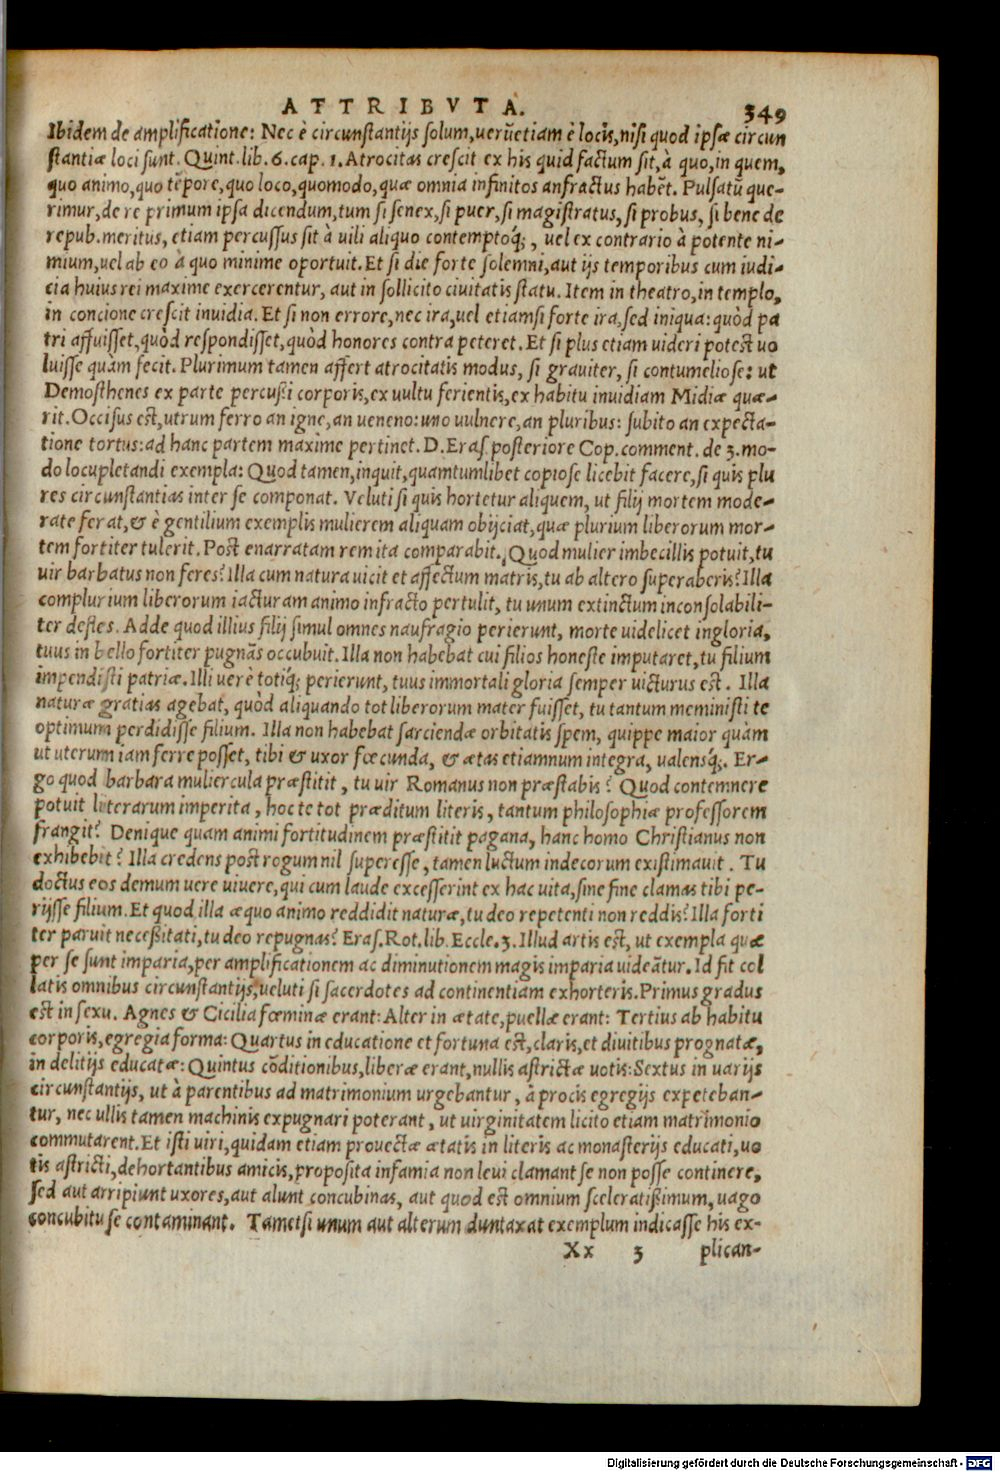 ATTRIBVTA. 349
Ibidem de amplificatione: Nec è circunſtantijs ſolum, uerũetiam è locis, niſi quod ipſæ circun
ſtantiæ loci ſunt. Quint. lib. 6. cap. 1. Atrocitas creſcit ex his quid factum ſit, à quo, in quem,
quo animo, quo tẽpore, quo loco, quomodo, quæ omnia infinitos anfractus habẽt. Pulſatũ que-
rimur, de re primum ipſa dicendum, tum ſi ſenex, ſi puer, ſi magiſtratus, ſi probus, ſi bene de
repub. meritus, etiam percuſſus ſit à uili aliquo contemptoq́;, uel ex contrario à potente ni-
mium, uel ab eo à quo minime oportuit. Et ſi die forte ſolemni, aut ijs temporibus cum iudi-
cia huius rei maxime exercerentur, aut in ſollicito ciuitatis ſtatu. Item in theatro, in templo,
in concione creſcit inuidia. Et ſi non errore, nec ira, uel etiamſi forte ira, ſed iniqua: quòd pa
tri affuiſſet, quòd reſpondiſſet, quòd honores contra peteret. Et ſi plus etiam uideri poteſt uo
luiſſe quàm fecit. Plurimum tamen affert atrocitatis modus, ſi grauiter, ſi contumelioſe: ut
Demoſthenes ex parte percußi corporis, ex uultu ferientis, ex habitu inuidiam Midiæ quæ-
rit. Occiſus eſt, utrum ferro an igne, an ueneno: uno uulnere, an pluribus: ſubito an expecta-
tione tortus: ad hanc partem maxime pertinet. D. Eraſ. poſteriore Cop. comment. de 3. mo-
do locupletandi exempla: Quod tamen, inquit, quamtumlibet copioſe licebit facere, ſi quis plu
res circunſtantias inter ſe componat. Veluti ſi quis hortetur aliquem, ut filij mortem mode-
rate ferat, & è gentilium exemplis mulierem aliquam obijciat, quæ plurium liberorum mor-
tem fortiter tulerit. Poſt enarratam rem ita comparabit. Quod mulier imbecillis potuit, tu
uir barbatus non feres? Illa cum natura uicit et affectum matris, tu ab altero ſuperaberis? Illa
complurium liberorum iacturam animo infracto pertulit, tu unum extinctum inconſolabili-
ter defles. Adde quod illius filij ſimul omnes naufragio perierunt, morte uidelicet ingloria,
tuus in bello fortiter pugnãs occubuit. Illa non habebat cui filios honeſte imputaret, tu filium
impendiſti patriæ. Illi uere totiq́; perierunt, tuus immortali gloria ſemper uicturus eſt. Illa
naturæ gratias agebat, quòd aliquando tot liberorum mater fuiſſet, tu tantum meminiſti te
optimum perdidiſſe filium. Illa non habebat ſarciendæ orbitatis ſpem, quippe maior quàm
ut uterum iam ferre poſſet, tibi & uxor fœcunda, & ætas etiamnum integra, ualensq́;. Er-
go quod barbara muliercula præſtitit, tu uir Romanus non præſtabis? Quod contemnere
potuit literarum imperita, hoc te tot præditum literis, tantum philoſophiæ profeſſorem
frangit? Denique quam animi fortitudinem præſtitit pagana, hanc homo Chriſtianus non
exhibebit? Illa credens poſt rogum nil ſupereſſe, tamen luctum indecorum exiſtimauit. Tu
doctus eos demum uere uiuere, qui cum laude exceſſerint ex hac uita, ſine fine clamas tibi pe-
rijſſe filium. Et quod illa æquo animo reddidit naturæ, tu deo repetenti non reddis? Illa forti
ter paruit neceßitati, tu deo repugnas? Eraſ. Rot. lib. Eccle. 3. Illud artis eſt, ut exempla quæ
per ſe ſunt imparia, per amplificationem ac diminutionem magis imparia uideãtur. Id fit col
latis omnibus circunſtantijs, ueluti ſi ſacerdotes ad continentiam exhorteris. Primus gradus
eſt in ſexu. Agnes & Cicilia fœminæ erant: Alter in ætate, puellæ erant: Tertius ab habitu
corporis, egregia forma: Quartus in educatione et fortuna eſt, claris, et diuitibus prognatæ,
in delitijs educatæ: Quintus cõditionibus, liberæ erant, nullis aſtrictæ uotis: Sextus in uarijs
circunſtantijs, ut à parentibus ad matrimonium urgebantur, à procis egregijs expeteban-
tur, nec ullis tamen machinis expugnari poterant, ut uirginitatem licito etiam matrimonio
commutarent. Et iſti uiri, quidam etiam prouectæ ætatis in literis ac monaſterijs educati, uo
tis aſtricti, dehortantibus amicis, propoſita infamia non leui clamant ſe non poſſe continere,
ſed aut arripiunt uxores, aut alunt concubinas, aut quod eſt omnium ſceleratißimum, uago
concubitu ſe contaminant. Tametſi unum aut alterum duntaxat exemplum indicaſſe his ex-
Xx 3 plican-
Digitalisierung gefördert durch die Deutsche Forschungsgemeinschaft - DFG